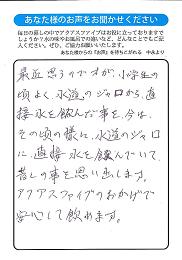 あなた様のお声をお聞かせください
毎日の暮しの中でアクアスファイブはお役に立っておりますで
しょうか？水の味やお風呂での違いなど、どんなことでもご記
入ください。ぜひ、ご協力お願いいたします。
あなた様からの『お声』を待ちこがれる 中永より
最近思うのですが、小学生の
頃よく、水道のジャ口から、直
接水を飲んだ事を、今は、
その頃の様に、水道のジャ口
に、直接水を飲んでいて、
昔しの事を思い出します。
アクアスファイブのおかげで
安心して飲めます。